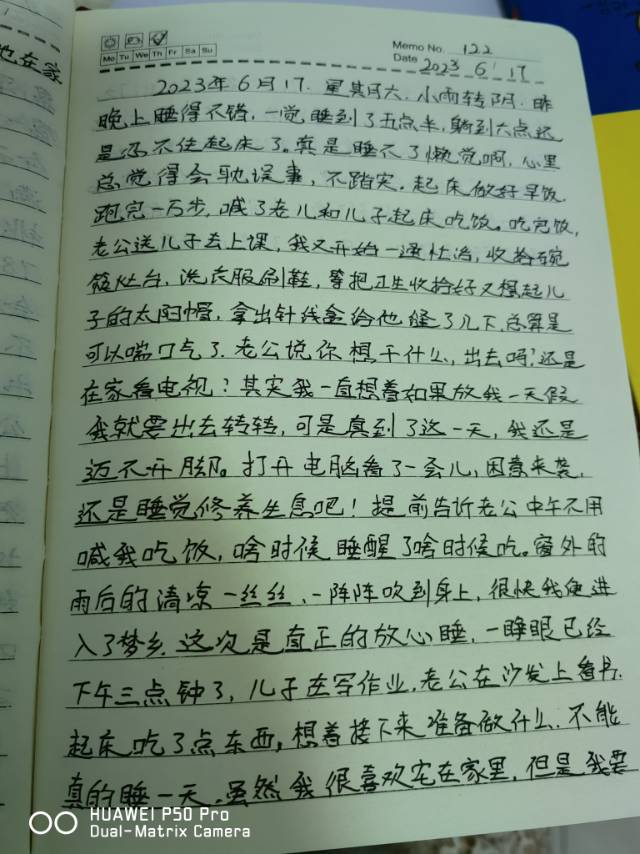 Mo Tu We Th Fr Sa Su
Memo No. 122
Date 2023 6 17
也在家
2023年6月17. 星其月六. 小雨转阴. 昨
晚上睡得不错, 一觉睡到了五点半, 躺到六点还
是忍不住起床了。真是睡不了懒觉啊, 心里
总觉得会耽误事, 不踏实. 起床做好早饭.
跑完一万步, 喊了老儿和儿子起床吃饭。吃完饭,
老公送儿子去上课, 我又开始一通忙活, 收拾碗
筷灶台, 洗衣服刷鞋, 等把卫生收拾好又想起儿
子的太阳帽, 拿出针线盒给他缝了几下. 总算是
可以喘口气了. 老公说你想干什么, 出去吗? 还是
在家看电视? 其实我一直想着如果放我一天假
我就要出去转转, 可是真到了这一天, 我还是
迈不开脚。打开电脑看了一会儿, 困意来袭,
还是睡觉修养生息吧! 提前告诉老公中午不用
喊我吃饭, 啥时候睡醒了啥时候吃。窗外的
雨后的清凉一丝丝、一阵阵吹到身上, 很快我便进
入了梦乡. 这次是真正的放心睡, 一睁眼已经
下午三点钟了, 儿子在写作业, 老公在沙发上看书.
起床吃了点东西, 想着接下来准备做什么. 不能
真的睡一天. 虽然我很喜欢宅在家里, 但是我要
HUAWEI P50 Pro
Dual-Matrix Camera